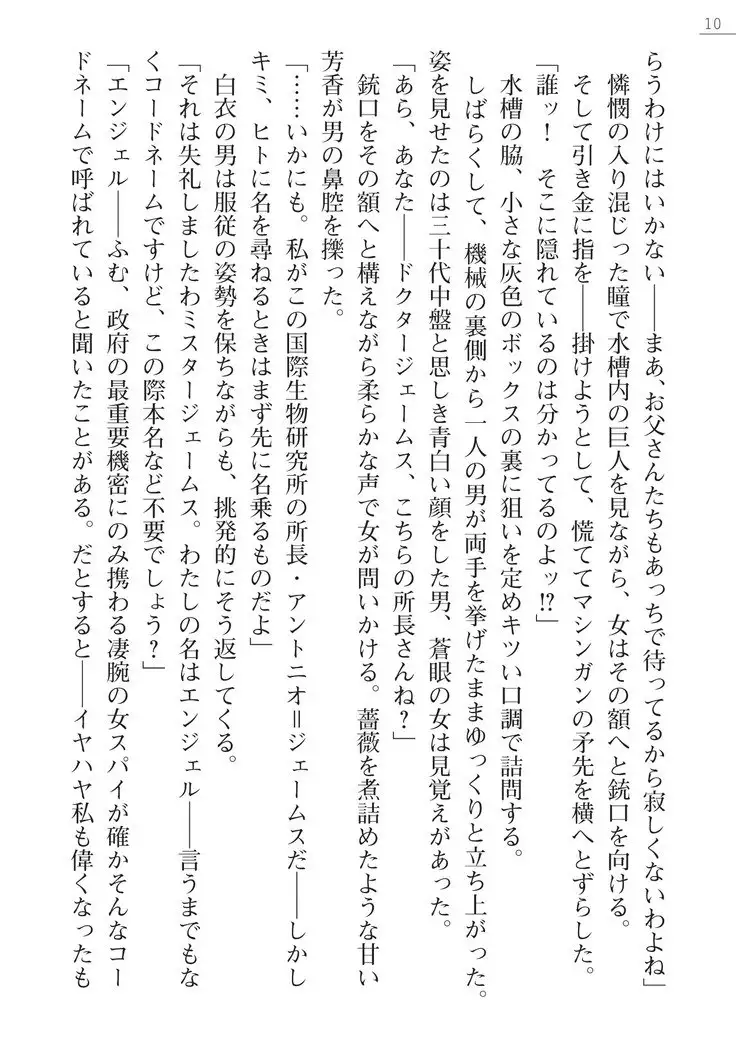 10
らうわけにはいかない――まあ、お父さんたちもあっちで待ってるから寂しくないわよね」
憐憫の入り混じった瞳で水槽内の巨人を見ながら、女はその額へと銃口を向ける。
そして引き金に指を――掛けようとして、慌ててマシンガンの矛先を横へとずらした。
「誰ッ！　そこに隠れているのは分かってるのよッ!?」
水槽の脇、小さな灰色のボックスの裏に狙いを定めキツい口調で詰問する。
しばらくして、機械の裏側から一人の男が両手を挙げたままゆっくりと立ち上がった。
姿を見せたのは三十代中盤と思しき青白い顔をした男、蒼眼の女は見覚えがあった。
「あら、あなた――ドクタージェームス、こちらの所長さんね？」
銃口をその額へと構えながら柔らかな声で女が問いかける。薔薇を煮詰めたような甘い
芳香が男の鼻腔を擽った。
「……いかにも。私がこの国際生物研究所の所長・アントニオ＝ジェームスだ――しかし
キミ、ヒトに名を尋ねるときはまず先に名乗るものだよ」
白衣の男は服従の姿勢を保ちながらも、挑発的にそう返してくる。
「それは失礼しましたわミスタージェームス。わたしの名はエンジェル――言うまでもな
くコードネームですけど、この際本名など不要でしょう？」
「エンジェル――ふむ、政府の最重要機密にのみ携わる凄腕の女スパイが確かそんなコー
ドネームで呼ばれていると聞いたことがある。だとすると――イヤハヤ私も偉くなったも